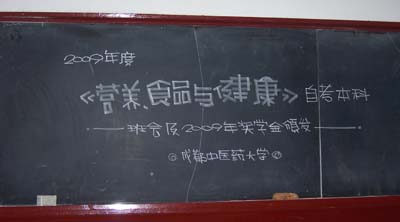 2009年度
《营养、食品与健康》自考本科
班会及2009年奖学金颁发
@成都中医药大学@